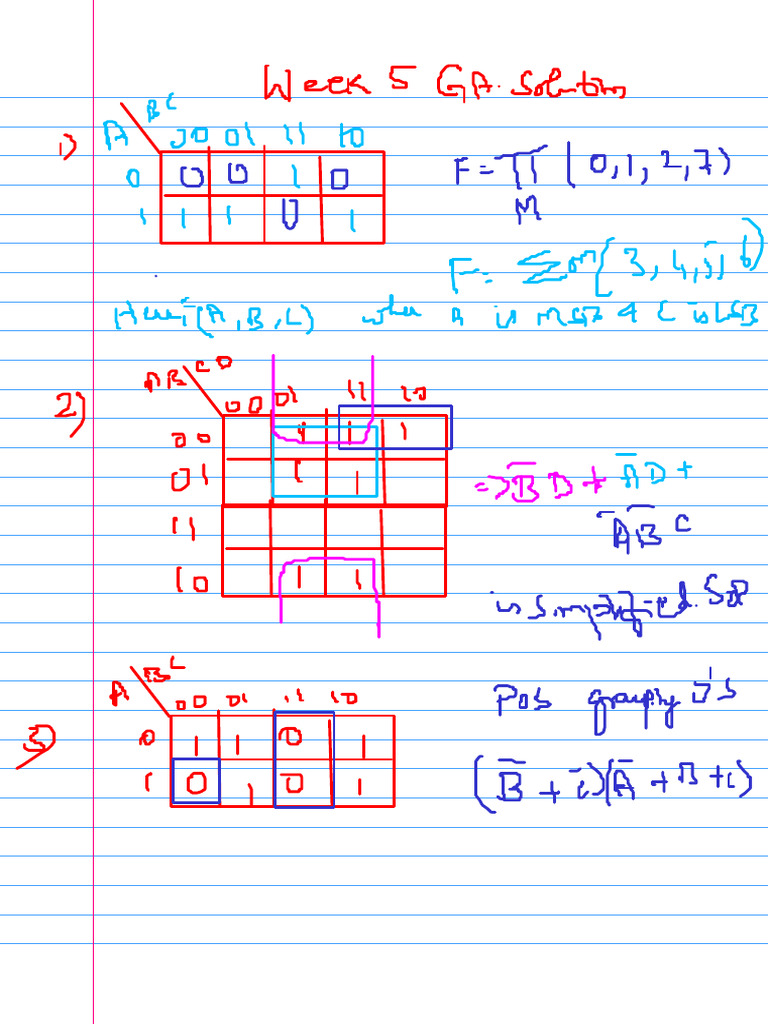 Week 5 GA Solution
1)
A BC 00 01 11 10
0 0 0 1 0
1 1 1 0 1
F = Π M (0, 1, 2, 7)
F = Σm(3, 4, 5, 6)
(A, B, C) when A is MSB & C is LSB
2)
AB CD 00 01 11 10
00 1 1 1
01 1 1
11
10 1 1
=> B̅ D + A̅ D +
A̅ B̅ C
is simplified SOP
3)
A BC 00 01 11 10
0 1 1 0 1
1 0 1 0 1
POS 0's
(B̅ + C̅)(A̅ + B + C)